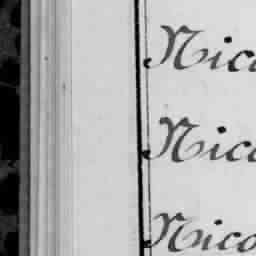 Nico
Nico
Nico